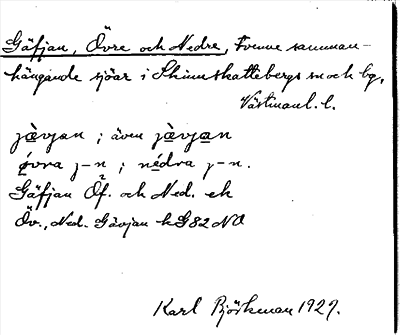 Gäfjan, Övre och Nedre, Tvenne samman-
hängande sjöar i Skinnskattebergs sn och bg,
Västmanl. l.
jä̀vjan ; även jä̀vjan
övra j-n ; nédra j-n.
Gäfjan Öf. och Ned. ek
Öv., Ned. Gävjan k G82 NO
Karl Björkman 1927.